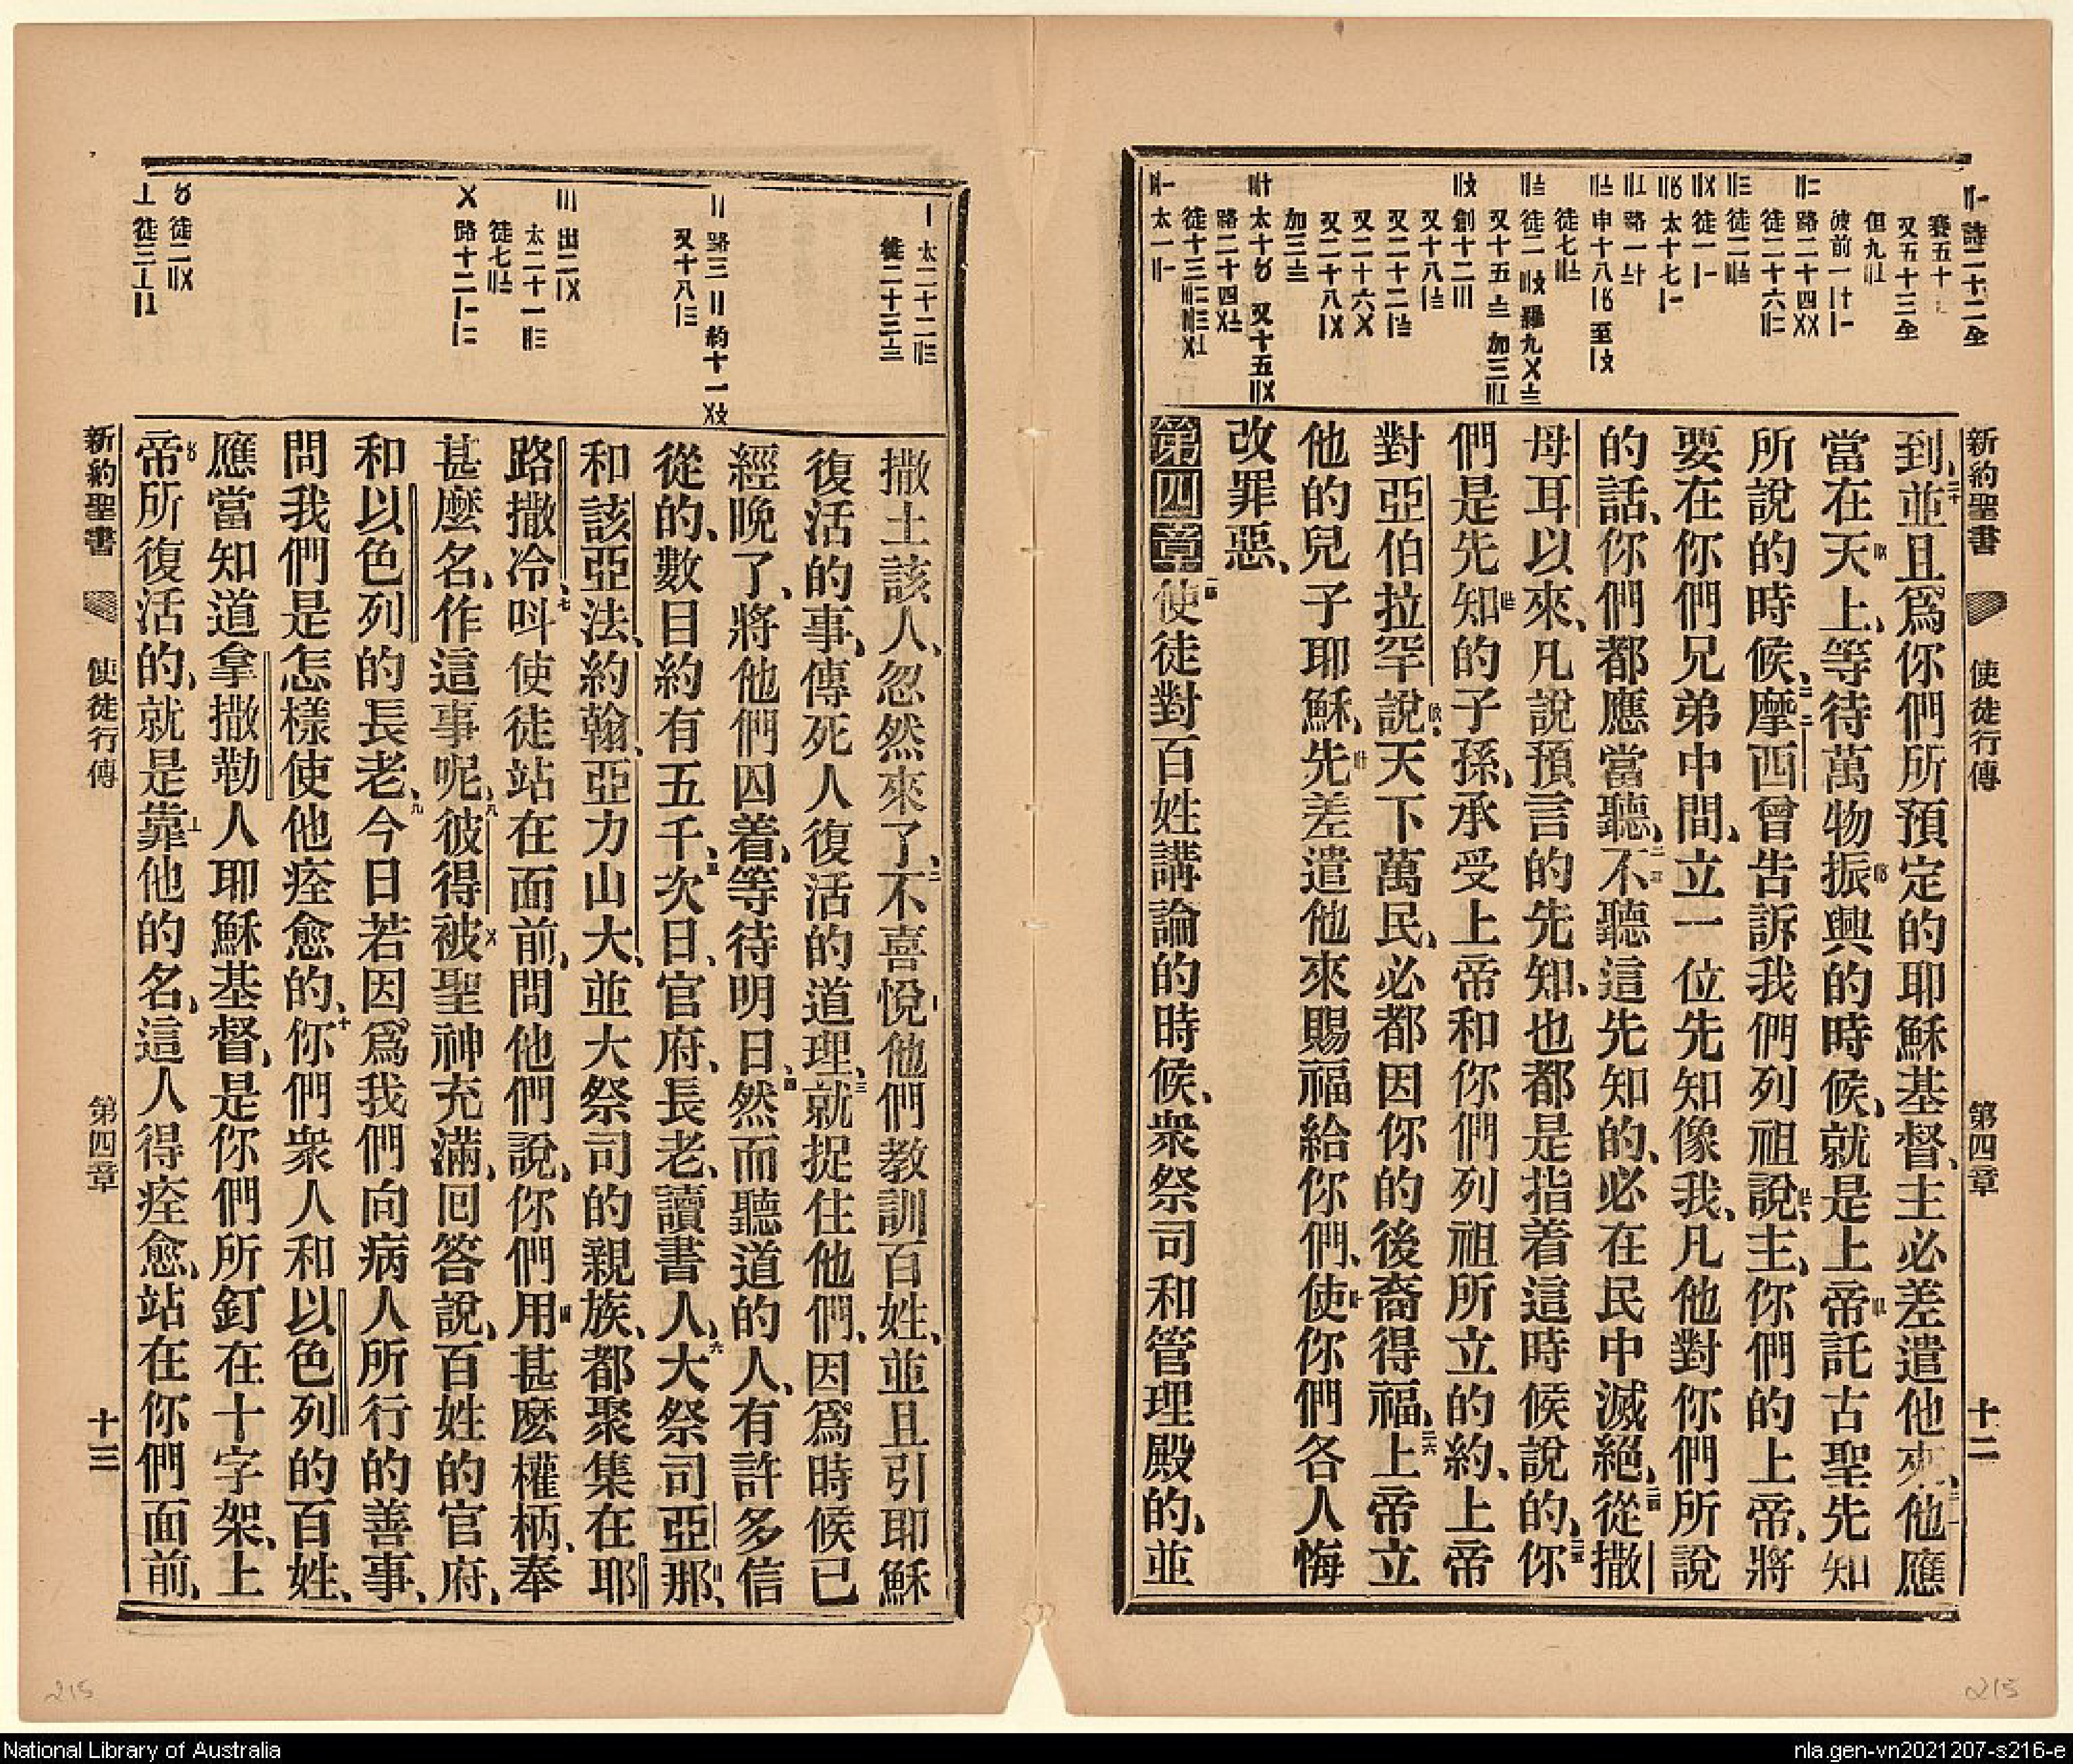 新約聖書 使徒行傳 第四章 十二
到並且爲你們所預定的耶穌基督、主必差遣他來、他應
當在天上、等待萬物振興的時候、就是上帝託古聖先知
所說的時候、摩西曾告訴我們列祖說、主、你們的上帝、將
要在你們兄弟中間、立一位先知像我、凡他對你們所說
的話、你們都應當聽、不聽這先知的、必在民中滅絕、從撒
母耳以來、凡說預言的先知、也都是指着這時候說的、你
們是先知的子孫、承受上帝和你們列祖所立的約、上帝
對亞伯拉罕說、天下萬民、必都因你的後裔得福、上帝立
他的兒子耶穌、先差遣他來賜福給你們、使你們各人悔
改罪惡、
第四章 使徒對百姓講論的時候、衆祭司和管理殿的、並
撒土該人、忽然來了、不喜悅他們教訓百姓、並且引耶穌
復活的事、傳死人復活的道理、就捉住他們、因爲時候已
經晚了、將他們囚着、等待明日、然而聽道的人、有許多信
從的、數目約有五千、次日、官府、長老、讀書人、大祭司亞那、
和該亞法、約翰、亞力山大、並大祭司的親族、都聚集在耶
路撒冷、呌使徒站在面前、問他們說、你們用甚麽權柄、奉
甚麽名、作這事呢、彼得被聖神充滿、回答說、百姓的官府、
和以色列的長老、今日若因爲我們向病人所行的善事、
問我們是怎樣使他痊愈的、你們衆人和以色列的百姓、
應當知道拿撒勒人耶穌基督、是你們所釘在十字架、上
帝所復活的、就是靠他的名、這人得痊愈、站在你們面前、
新約聖書 使徒行傳 第四章 十三
215
215
National Library of Australia
nla.gen-vn2021207-s216-e